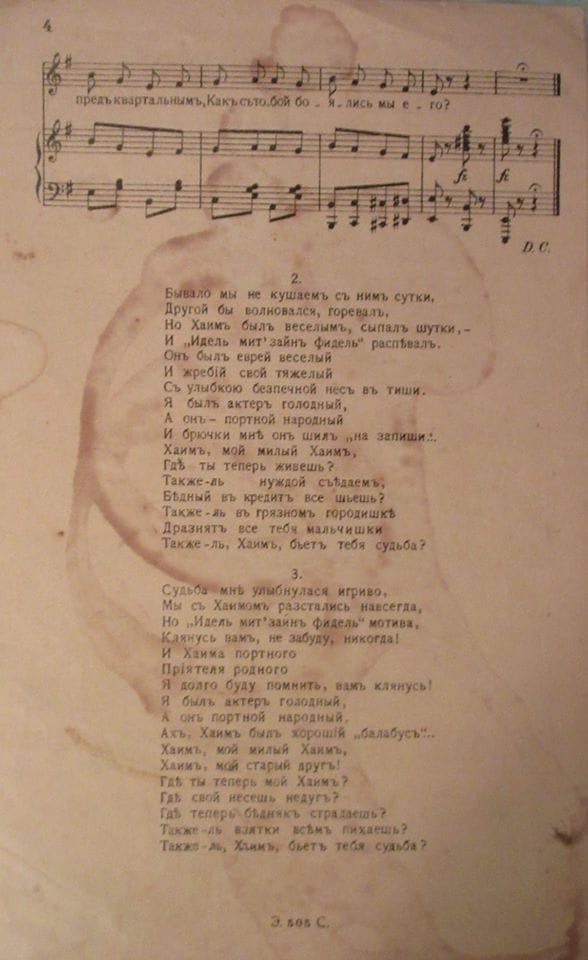 4
предъ квартальнымъ, Какъ съ то_бой бо - я - лись мы е - го?
fz fz
D. C.
2.
Бывало мы не кушаемъ съ нимъ сутки,
Другой бы волновался, горевалъ,
Но Хаимъ былъ веселымъ, сыпалъ шутки,-
И „Идель мит'зайнъ фидель" распѣвалъ.
Онъ былъ еврей веселый
И жребій свой тяжелый
Съ улыбкою безпечной несъ въ тиши.
Я былъ актеръ голодный,
А онъ- портной народный
И брючки мнѣ онъ шилъ „на запиши".
Хаимъ, мой милый Хаимъ,
Гдѣ ты теперь живешь?
Также-ль нуждой съѣдаемъ,
Бѣдный въ кредитъ все шьешь?
Также-ль въ грязномъ городишкѣ
Дразнятъ все тебя мальчишки
Также-ль, Хаимъ, бьетъ тебя судьба?
3.
Судьба мнѣ улыбнулася игриво,
Мы съ Хаимомъ разстались навсегда,
Но „Идель мит'зайнъ фидель" мотива,
Клянусь вамъ, не забуду, никогда!
И Хаима портного
Пріятеля родного
Я долго буду помнить, вамъ клянусь!
Я былъ актеръ голодный,
А онъ портной народный.
Ахъ, Хаимъ былъ хорошій „балабусъ"..
Хаимъ, мой милый Хаимъ,
Хаимъ, мой старый другъ!
Гдѣ ты теперь мой Хаимъ?
Гдѣ свой несешь недугъ?
Гдѣ теперь бѣднякъ страдаешь?
Также-ль взятки всѣмъ пихаешь?
Также-ль, Хъимъ, бьетъ тебя судьба?
Э. 505 С.